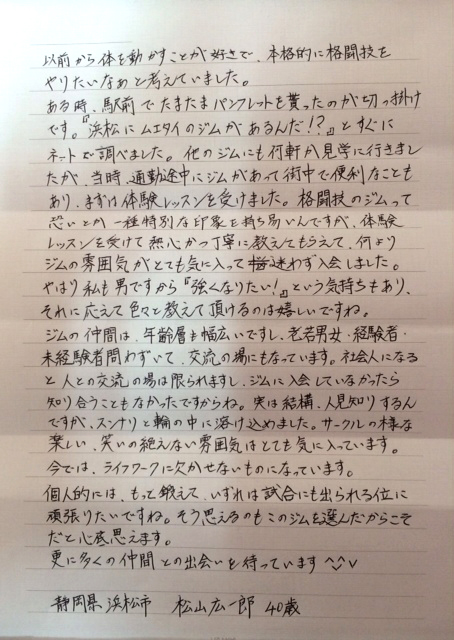 以前から体を動かすことが好きで、本格的に格闘技を
やりたいなぁと考えていました。
ある時、駅前でたまたまパンフレットを貰ったのが切っ掛け
です。『浜松にムエタイのジムがあるんだ!?』とすぐに
ネットで調べました。他のジムにも何軒か見学に行きまし
たが、当時、通勤途中にジムがあって街中で便利なことも
あり、まずは体験レッスンを受けました。格闘技のジムって
恐いとか一種特別な印象を持ち易いんですが、体験
レッスンを受けて熱心かつ丁寧に教えてもらえて、何より
ジムの雰囲気がとても気に入って迷わず入会しました。
やはり私も男ですから『強くなりたい!』という気持ちもあり、
それに応えて色々と教えて頂けるのは嬉しいですね。
ジムの仲間は、年齢層も幅広いですし、老若男女・経験者・
未経験者問わずいて、交流の場にもなっています。社会人になる
と人との交流の場は限られますし、ジムに入会していなかったら
知り合うこともなかったですからね。実は結構、人見知りするん
ですが、スンナリと輪の中に溶け込めました。サークルの様な
楽しい、笑いの絶えない雰囲気はとても気に入っています。
今では、ライフワークに欠かせないものになっています。
個人的には、もっと鍛えて、いずれは試合にも出られる位に
頑張りたいですね。そう思えるのもこのジムを選んだからこそ
だと心底思えます。
更に多くの仲間との出会いを待っています^^v
静岡県浜松市 松山広一郎 40歳